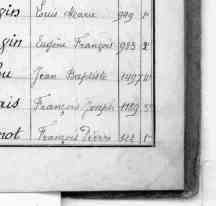 gin Louis Marie 949 1°
gin Eugène François 983 2°
Jean Baptiste 1497
ais François Joseph 1189
not François Pierre 1°